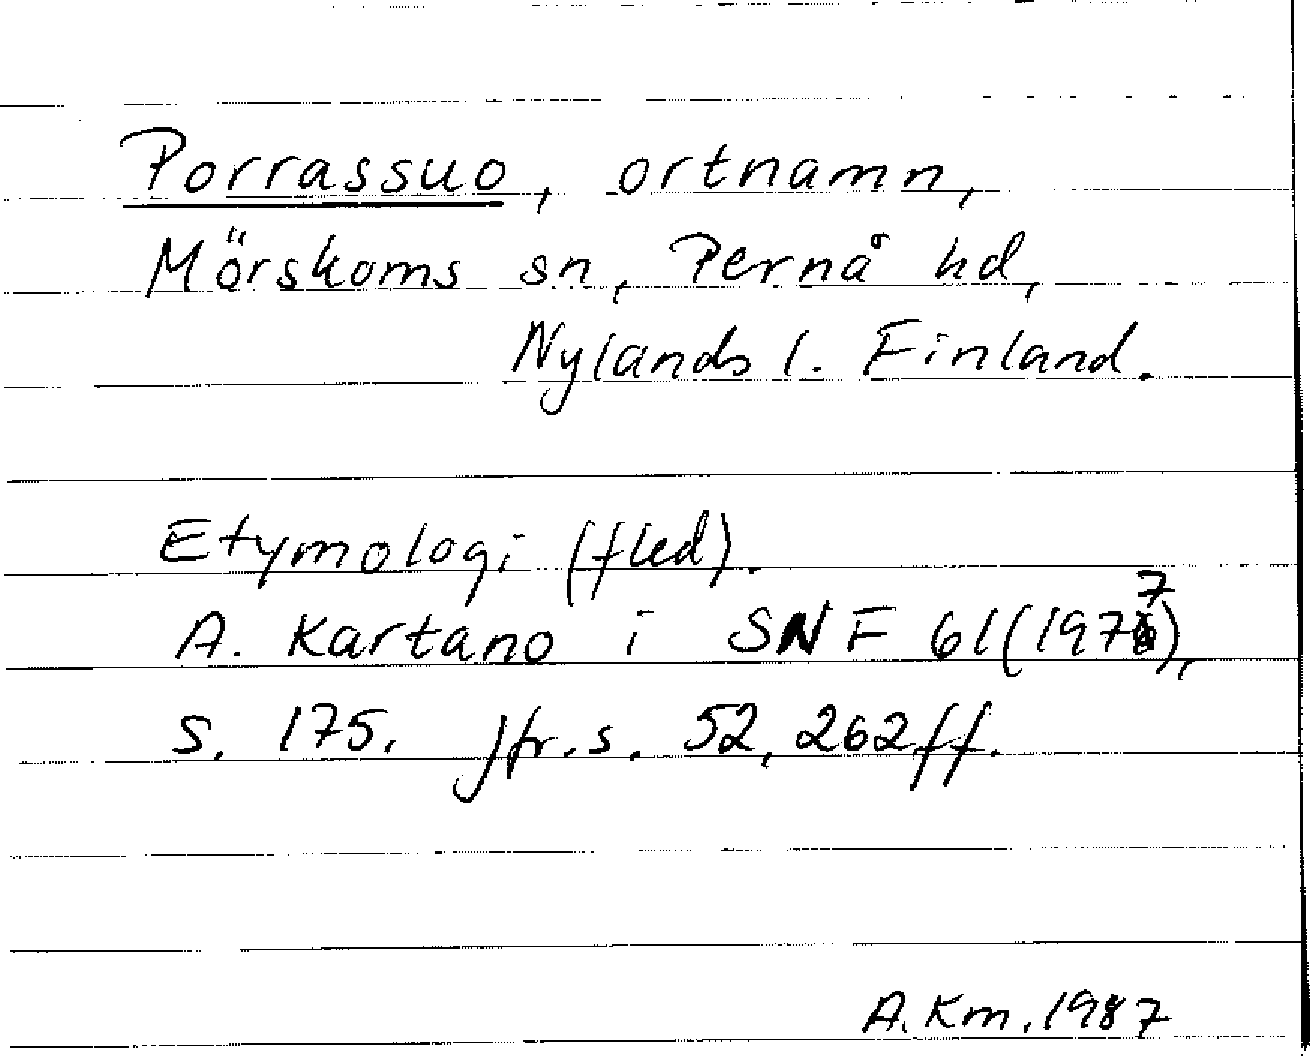 Porrassuo, ortnamn,
Mörskoms sn, Pernå hd,
Nylands l. Finland.
Etymologi (fled).
A. Kartano i SNF 61(1977),
s. 175. Jfr. s. 52, 262ff.
A. Km. 1987